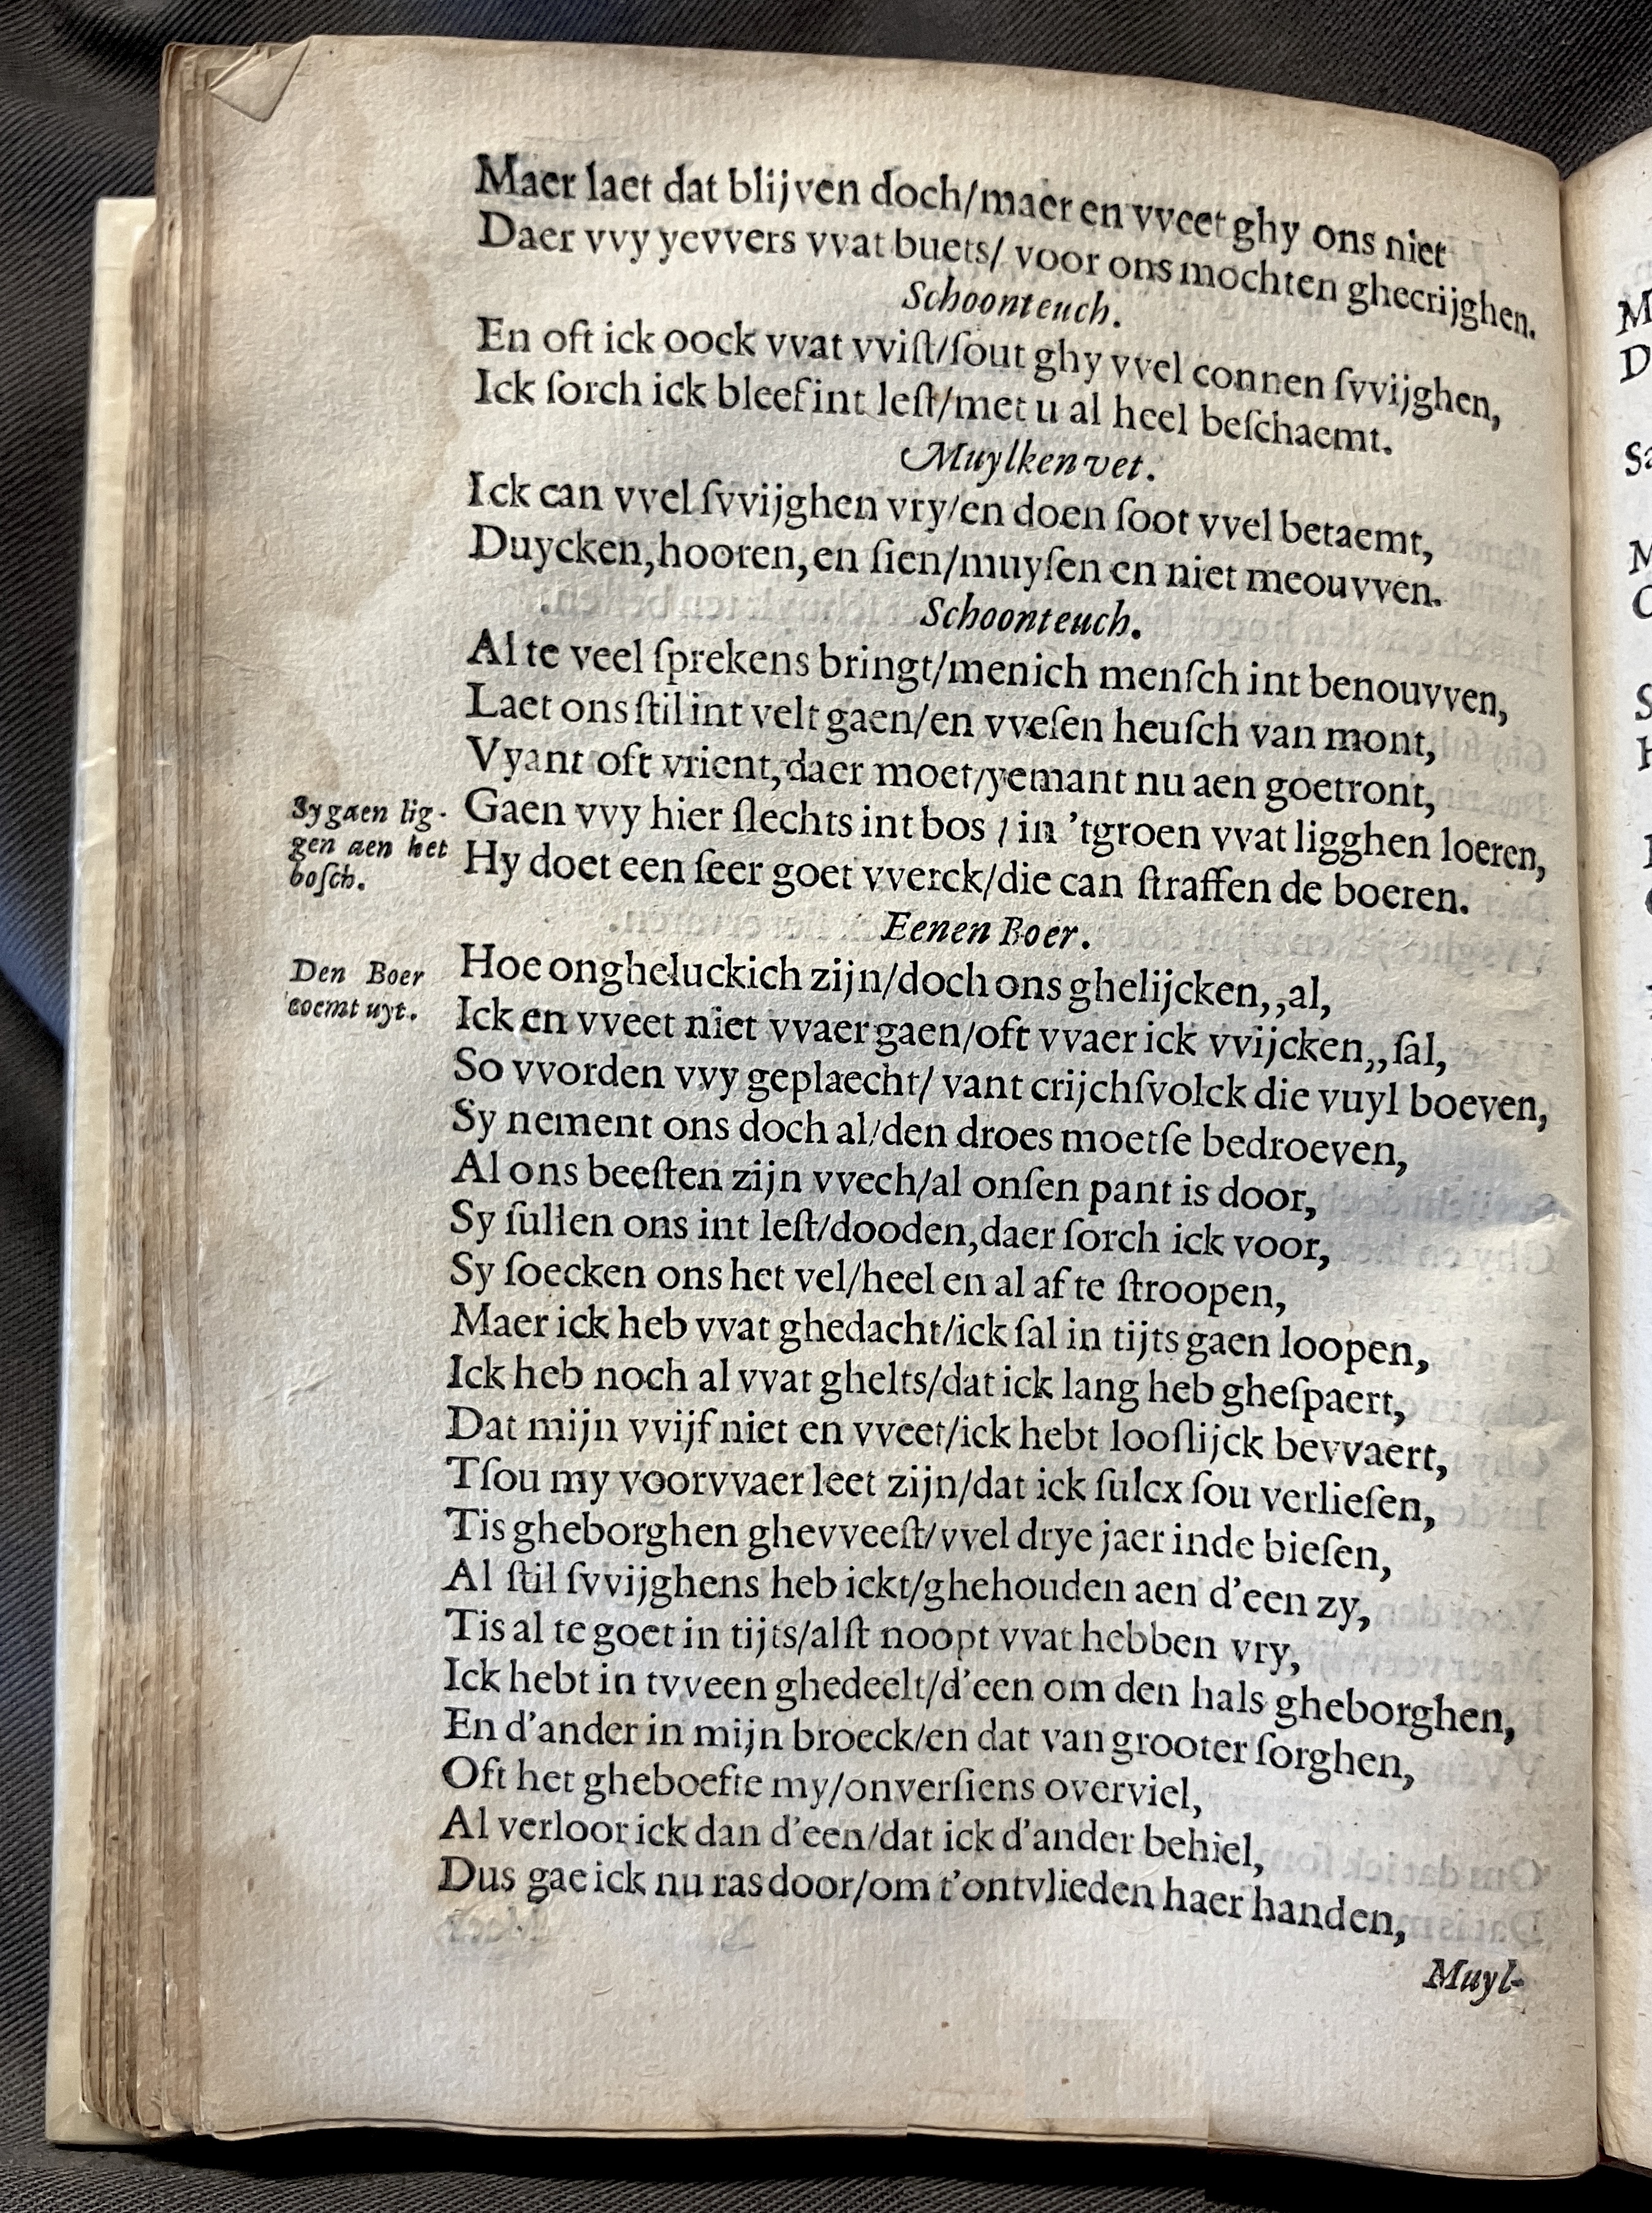 Maer laet dat blijven doch/maer en vveet ghy ons niet
Daer vvy yevvers vvat buets/ voor ons mochten ghecrijghen.
Schoonteuch.
En oft ick oock vvat vviſt/ſout ghy vvel connen ſvvijghen,
Ick ſorch ick bleef int leſt/met u al heel beſchaemt.
Muylken vet.
Ick can vvel ſvvijghen vry/en doen ſoot vvel betaemt,
Duycken,hooren,en ſien/muyſen en niet meouvven.
Schoonteuch.
Al te veel ſprekens bringt/menich menſch int benouvven,
Laet ons ſtil int velt gaen/en vveſen heuſch van mont,
Vyant oft vrient,daer moet/yemant nu aen goetront,
Sy gaen lig-
gen aen het
boſch.
Gaen vvy hier ſlechts int bos / in 'tgroen vvat ligghen loeren,
Hy doet een ſeer goet vverck/die can ſtraffen de boeren.
Eenen Boer.
Den Boer
coemt uyt.
Hoe ongheluckich zijn/doch ons ghelijcken,,al,
Ick en vveet niet vvaer gaen/oft vvaer ick vvijcken,,ſal,
So vvorden vvy geplaecht/ vant crijchſvolck die vuyl boeven,
Sy nement ons doch al/den droes moetſe bedroeven,
Al ons beeſten zijn vvech/al onſen pant is door,
Sy ſullen ons int leſt/dooden,daer ſorch ick voor,
Sy ſoecken ons het vel/heel en al af te ſtroopen,
Maer ick heb vvat ghedacht/ick ſal in tijts gaen loopen,
Ick heb noch al vvat ghelts/dat ick lang heb gheſpaert,
Dat mijn vvijf niet en vveet/ick hebt looſlijck bevvaert,
Tſou my voorvvaer leet zijn/dat ick ſulcx ſou verlieſen,
Tis gheborghen ghevveeſt/vvel drye jaer inde bieſen,
Al ſtil ſvvijghens heb ickt/ghehouden aen d'een zy,
Tis al te goet in tijts/alſt noopt vvat hebben vry,
Ick hebt in tvveen ghedeelt/d'een om den hals gheborghen,
En d'ander in mijn broeck/en dat van grooter ſorghen,
Oft het gheboefte my/onverſiens overviel,
Al verloor ick dan d'een/dat ick d'ander behiel,
Dus gae ick nu ras door/om t'ontvlieden haer handen,
Muyl-